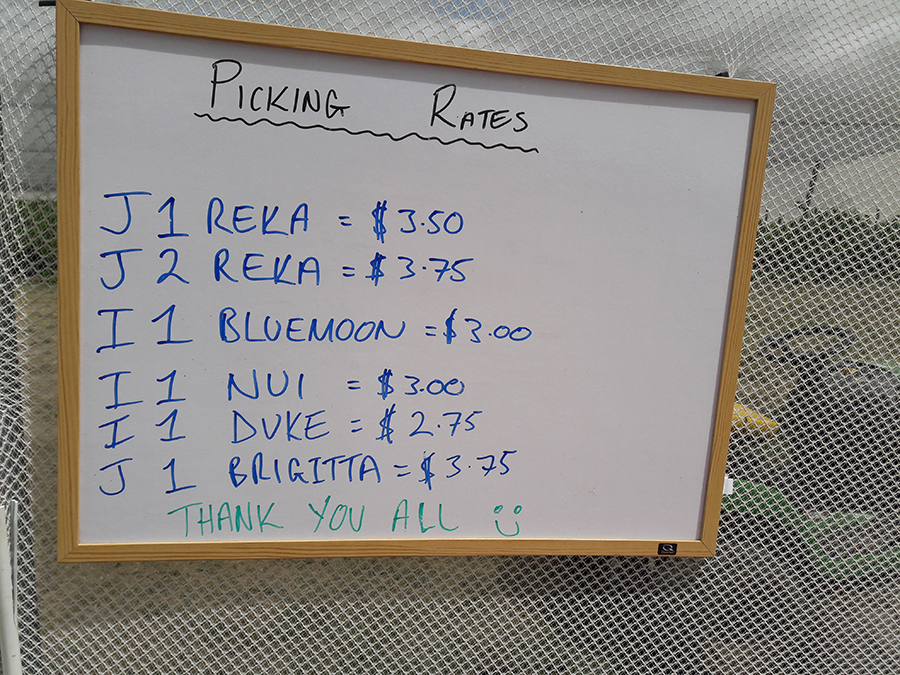 PICKING RATES
J 1 REKA = $3.50
J 2 REKA = $3.75
I 1 BLUEMOON = $3.00
I 1 NUI = $3.00
I 1 DUKE = $2.75
J 1 BRIGITTA = $3.75
THANK YOU ALL